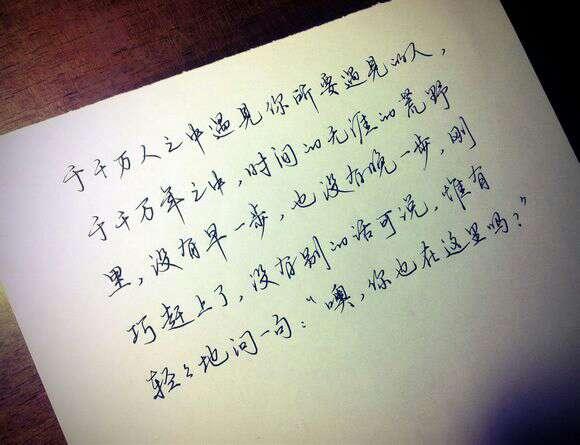 于千万人之中遇见你所要遇见的人，
于千万年之中，时间的无涯的荒野
里，没有早一步，也没有晚一步，刚
巧赶上了，没有别的话可说，惟有
轻轻地问一句：“噢，你也在这里吗？”